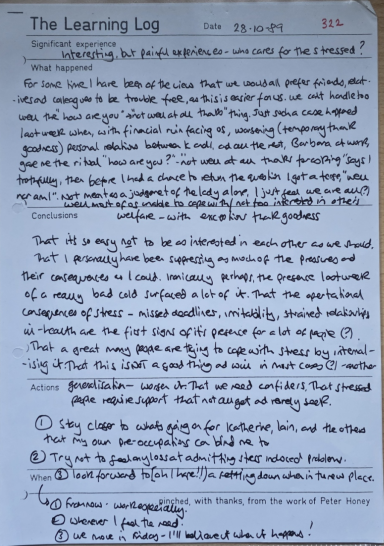 The Learning Log
Date 28·10·89
322
Significant experience
Interesting, but painful experiences - who cares for the stressed?
What happened
For some time I have been of the view that we would all prefer friends, relat-
ives and colleagues to be trouble free, as this is easier for us. We can't handle too
well the "how are you" - "not well at all thanks" thing. Just such a case happened
last week when, with financial ruin facing us, worsening (temporary thank
goodness) personal relations between K and I, and all the rest, Barbara at work,
gave me the ritual "how are you?" - "not well at all thanks for asking" says I
truthfully, then before I had a chance to return the question I got a terse, "well
nor am I". Not meant as a judgement of the lady alone, I just feel we are all(?)
well most of us unable to cope with/not too interested in others
welfare - with exceptions thank goodness
Conclusions
That it's so easy not to be as interested in each other as we should.
That I personally have been suppressing as much of the pressures and
their consequences as I could. Ironically perhaps, the presence last week
of a really bad cold surfaced a lot of it. That the operational
consequences of stress - missed deadlines, irritability, strained relationships
in-health are the first signs of its presence for a lot of people (?)
That a great many people are trying to cope with stress by internal-
-ising it. That this isn't a good thing and wise in most cases (?) - another
generalisation - worse. That we need confiders. That stressed
people require support that not all get and rarely seek.
Actions
① Stay closer to what's going on for Katherine, Iain, and the others
that my own pre-occupations can blind me to
② Try not to feel any loss at admitting stress induced problems.
③ look forward to (oh I hope!!) a settling down when in the new place.
When
① From now - work especially.
② Whenever I feel the need.
③ we move in Friday - I'll believe it when it happens!
pinched, with thanks, from the work of Peter Honey